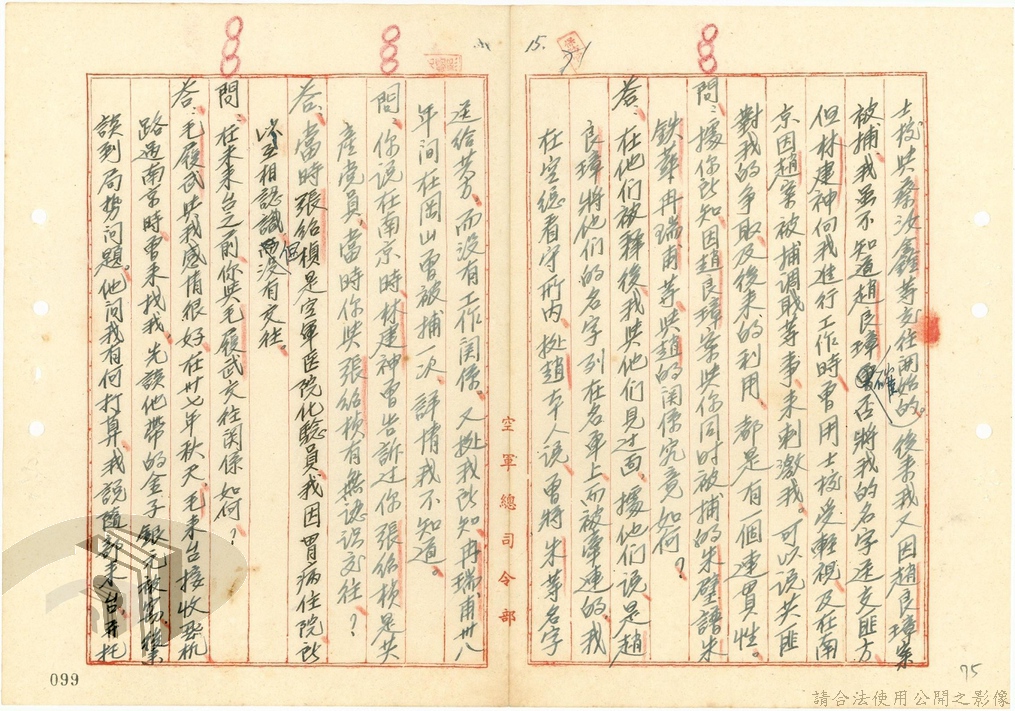 15.
士校與蔡汝鑫等交往開始的。後來我又因趙良璋案
被捕我雖不知道趙良璋確否將我的名字送交匪方
但林建神向我進行工作時曾用士校受輕視及在南
京因趙案被捕調職等事來刺激我。可以說共匪
對我的爭取及後來的利用、都是有一個連貫性。
問:據你所知因趙良璋案與你同時被捕的朱璧譜朱
鉄華冉瑞甫等與趙的関係究竟如何?
答:在他们被釋後我與他们見过面、據他们說是趙
良璋將他们的名字列在名单上而被牽連的、我
在空總看守所內、趙本人說曾將朱等名字
送給共方、而沒有工作関係、又據我所知冉瑞甫卅八
年间在岡山曾被捕一次、詳情我不知道。
問:你说在南京時、林建神曾告訴过你張紹楨是共
產党員、當時你與張紹楨有無認识交往?
答:當時張紹楨是空軍医院化驗員、我因胃病住院所
以互相認識但沒有交往。
問:在未來台之前、你與毛履武交往関係如何?
答:毛履武與我感情很好在卅七年秋天、毛來台接收飛机
路过南京時、曾來找我、先談他帶的金子銀元被
談到局势问題。他问我有何打算、我說隨部來台、
空軍總司令部
099
75
請合法使用公開之影像